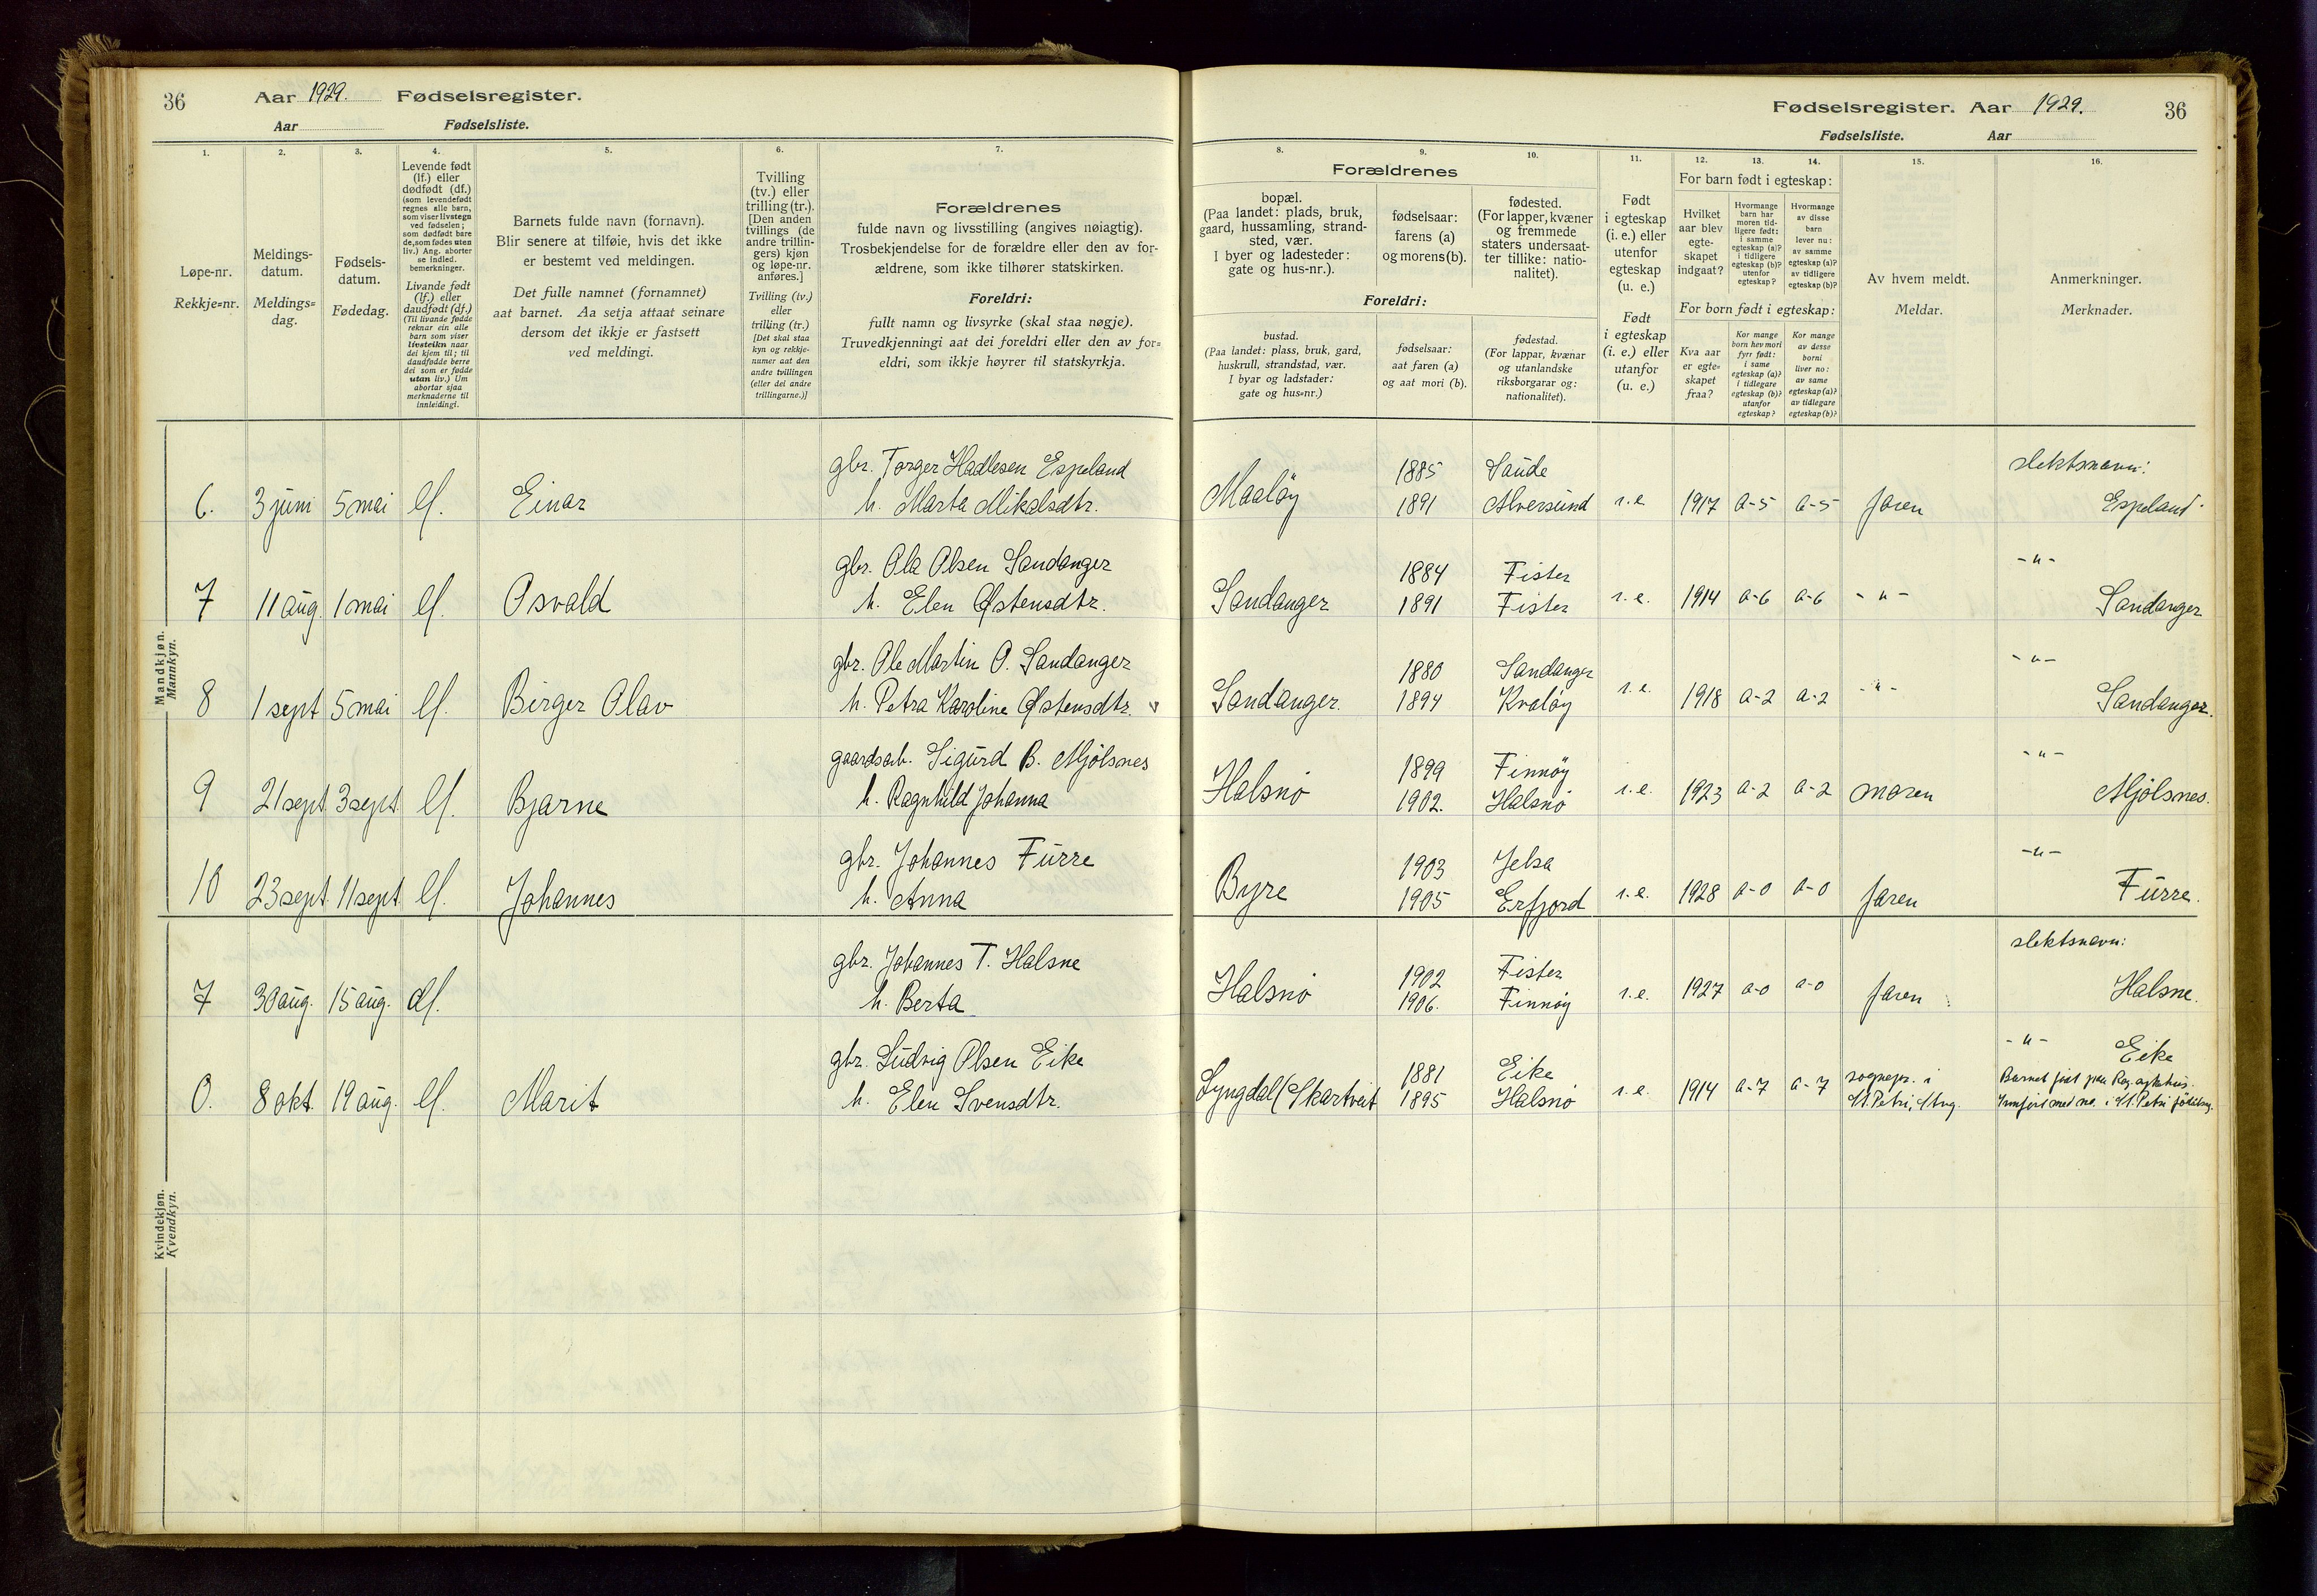 36 Aar 1929. Fødselsregister.
Aar Fødselsliste.
Fødselsregister. Aar 1929. 36
Fødselsliste. Aar
1. 2. 3. 4. 5. 6. 7.
Løpe-nr.
Rekkje=nr.
Meldings-
datum.
Meldings=
dag.
Fødsels-
datum.
Fødedag.
Levende født
(lf.) eller
dødfødt (df.)
(som levendefødt
regnes alle barn,
som viser livstegn
ved fødselen;
som dødfødt bare
de, som fødes uten
liv.) Ang. aborter
se indled.
bemerkninger.
Livande født
(lf.) eller
daudfødt (df.)
(Til livande fødde
reknar ein alle
barn som viser
livsteikn naar
dei kjem til; til
daudfødde berre
dei som er fødde
utan liv.) Um
abortar sjaa
merknaderne til
innleidingi.
Barnets fulde navn (fornavn).
Blir senere at tilføie, hvis det ikke
er bestemt ved meldingen.
Det fulle namnet (fornamnet)
aat barnet. Aa setja attaat seinare
dersom det ikkje er fastsett
ved meldingi.
Tvilling
(tv.) eller
trilling (tr.).
[Den anden
tvillings (de
andre trillin-
gers) kjøn
og løpe-nr.
anføres.]
Tvilling (tv.)
eller
trilling (tr.)
[Det skal staa
kyn og rekkje-
numer aat den
andre tvillingen
(eller dei andre
trillingarne.)]
Forældrenes
fulde navn og livsstilling (angives nøiagtig).
Trosbekjendelse for de forældre eller den av for-
ældrene, som ikke tilhører statskirken.
Foreldri:
fullt namn og livsyrke (skal staa nøgje).
Truvedkjenningi aat dei foreldri eller den av for=
eldri, som ikkje høyrer til statskyrkja.
8. 9. 10. 11. 12. 13. 14. 15. 16.
Forældrenes
bopæl.
(Paa landet: plads, bruk,
gaard, hussamling, strand-
sted, vær.
I byer og ladesteder:
gate og hus-nr.).
fødselsaar:
farens (a)
og morens (b).
fødested.
(For lapper, kvæner
og fremmede
staters undersaat-
ter tillike: natio-
nalitet).
Foreldri:
bustad.
(Paa landet: plass, bruk, gard,
huskrull, strandstad, vær.
I byar og ladstader:
gate og hus=nr.)
fødselsaar:
aat faren (a)
og aat mori (b).
fødestad.
(For lappar, kvænar
og utanlandske
riksborgarar og:
nationalitet).
Født
i egteskap
(i. e.) eller
utenfor
egteskap
(u. e.)
Født
i egteskap
(i. e.) eller
utanfor
(u. e.)
For barn født i egteskap:
Hvilket
aar blev
egte-
skapet
indgaat?
Hvormange
barn har
moren tid-
ligere født:
i samme
egteskap (a)?
i tidligere
egteskap (b)?
utenfor
egteskap?
Hvormange
av disse
barn
lever nu:
av samme
egteskap (a)?
av tidligere
egteskap (b)?
For born født i egteskap:
Kva aar
er egte=
skapet
fraa?
Kor mange
born hev mori
fyrr født:
i same
egteskap (a)?
i tidlegare
egteskap (b)?
utanfor
egteskap?
Kor mange
av desse
borni
liver no:
av same
egteskap (a)?
av tidlegare
egteskap (b)?
Av hvem meldt.
Meldar.
Anmerkninger.
Merknader.
Mandkjøn.
Mannkyn.
gbr. Torger Hadlesen Espeland 1885 Saude slektsnavn:
6. 3 juni 5 mai lf. Einar h. Marta Mikalsdtr. Maaløy 1891 Alversund i.e. 1917 a-5 a-5 faren Espeland
gbr. Ola Olsen Sandanger 1884 Fister -"-
7 11 aug. 1 mai lf. Osvald h. Elen Østensdtr. Sandanger 1891 Fister i.e. 1914 a-6 a-6 -"- Sandanger
gbr. Ole Martin O. Sandanger 1880 Sandanger -"-
8 1 sept 5 mai lf. Birger Olav h. Petra Karoline Østensdtr. Sandanger. 1894 Kvaløy i.e. 1918 a-2 a-2 -"- Sandanger.
gaardsarb. Sigurd B. Mjölsnes 1899 Finnøy -"-
9 21 sept. 3 sept lf. Bjarne h. Ragnhild Johanna Halsnø 1902. Halsnø i.e. 1923 a-2 a-2 moren Mjölsnes.
gbr. Johannes Furre 1903 Jelsa -"-
10 23 sept. 11 sept. lf. Johannes h. Anna Byre 1905 Erfjord i.e. 1928 a-0 a-0 faren Furre.
Kvindekjøn.
Kvendkyn.
gbr. Johannes T. Halsne 1902 Fister slektsnavn:
7 30 aug. 15 aug. df. h. Berta Halsnø 1906. Finnøy i.e. 1927 a-0 a-0 faren Halsne.
gbr. Ludvig Olsen Eike 1881 Eike -"- Eike
0. 8 okt. 19 aug. lf. Marit h. Elen Svensdtr. Lyngdal (Skartveit 1895 Halsnø i.e. 1914 a-7 a-7 sognepr. i
St. Petri, Stvg.
Barnet født paa Rog. sykehus.
Innført med no. i St. Petri